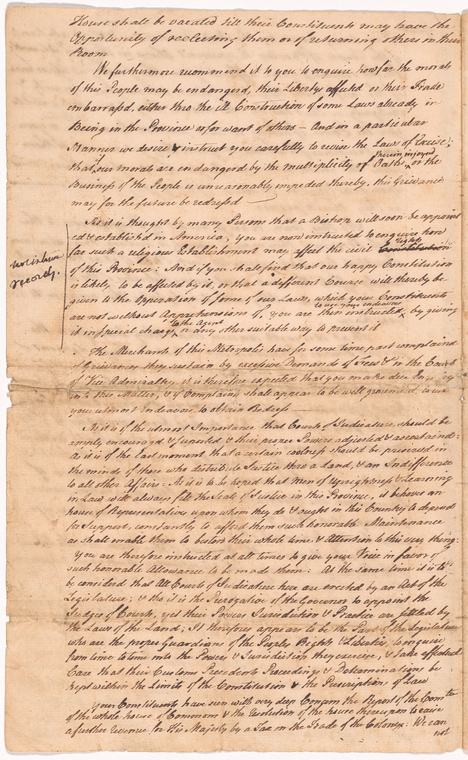 House shall be vacated till their Constituents may have the
Opportunity of reelecting them or of returning others in their
Room
We furthermore recommend it to you to enquire how far the morals
of this People may be endangered, their Liberty affected or their Trade
embarrassed, either thro the ill Construction of some Laws already in
Being in the Province or for want of others — And in a particular
Manner we desire & instruct you carefully to the Laws of Excise;
that if our morals are endangered by the multiplicity of Oaths therein injoyned, or the
Business of the People is unreasonably impeded thereby, this Grievance
may for the future be redressed —
As it is thought by many Persons that a Bishop will soon be appoint
ed & established in America, you are now instructed to enquire how
far such a religious Establishment may affect the civil Rights
of this Province: And if you shall find that our happy Constitution
is likely to be affected by it, or that a different Course will thereby be
given to the Opperation of some of our Laws, which your Constituents
are not without Apprehensions of, you are then instructed to use your endeavor by giving
it in special charge to the Agent or any other suitable way to prevent it
not in
records.
The Merchants of this Metropolis have for some time past complained
of grievances they sustain by excessive Demands of Fees &c in the Court
of Vice Admiralty, it is therefore expected that you make due Inquiry
into this Matter, & if Complaint shall appear to be well grounded, to use
your utmost Endeavor to obtain Redress —
As it is of the utmost Importance that Courts of Judicature should be
amply encouraged & supported, & their proper Powers adjusted & ascertained:
As it is of the last moment that a certain should be preserved in
the minds of those who distribute Justice thro a Land, & an Indifference
to all other Affairs: As it is to be hoped that Men of Uprightness & Learning
in Law will always fill the Seats of Justice in this Province, it behoves an
house of Representatives upon whom they do & ought in this Country to depend
for Support, constantly to afford them such honorable Maintenance
as shall enable them to bestow their whole time & Attention to this very thing:
You are therefore instructed at all times to give your Voice in favor of
such honorable Allowance to be made them: At the same time it is to
be considered that All Courts of Judicature here are erected by an Act of the
Legislature; & tho it is the Prerogative of the Governor to appoint the
Judges of Courts, yet their Powers Jurisdiction & Practice are settled by
the Laws of the Land; It therefore appears to be the of the Legislature
who are the proper Guardians of the Peoples Rights & Liberties, to enquire
from time to time into the Powers & Jurisdiction they exercise, & take effectual
Care that their Customs Precedents Proceedings & Determinations be
kept within the Limits of the Constitution & the Prescription of Law
Your Constituents have seen with very deep Concern the Report of the Comtee
of the whole house of Commons & the Resolution of the house thereupon to raise
a further Revenue for His Majesty by a Tax on the Trade of the Colonys: We can
not